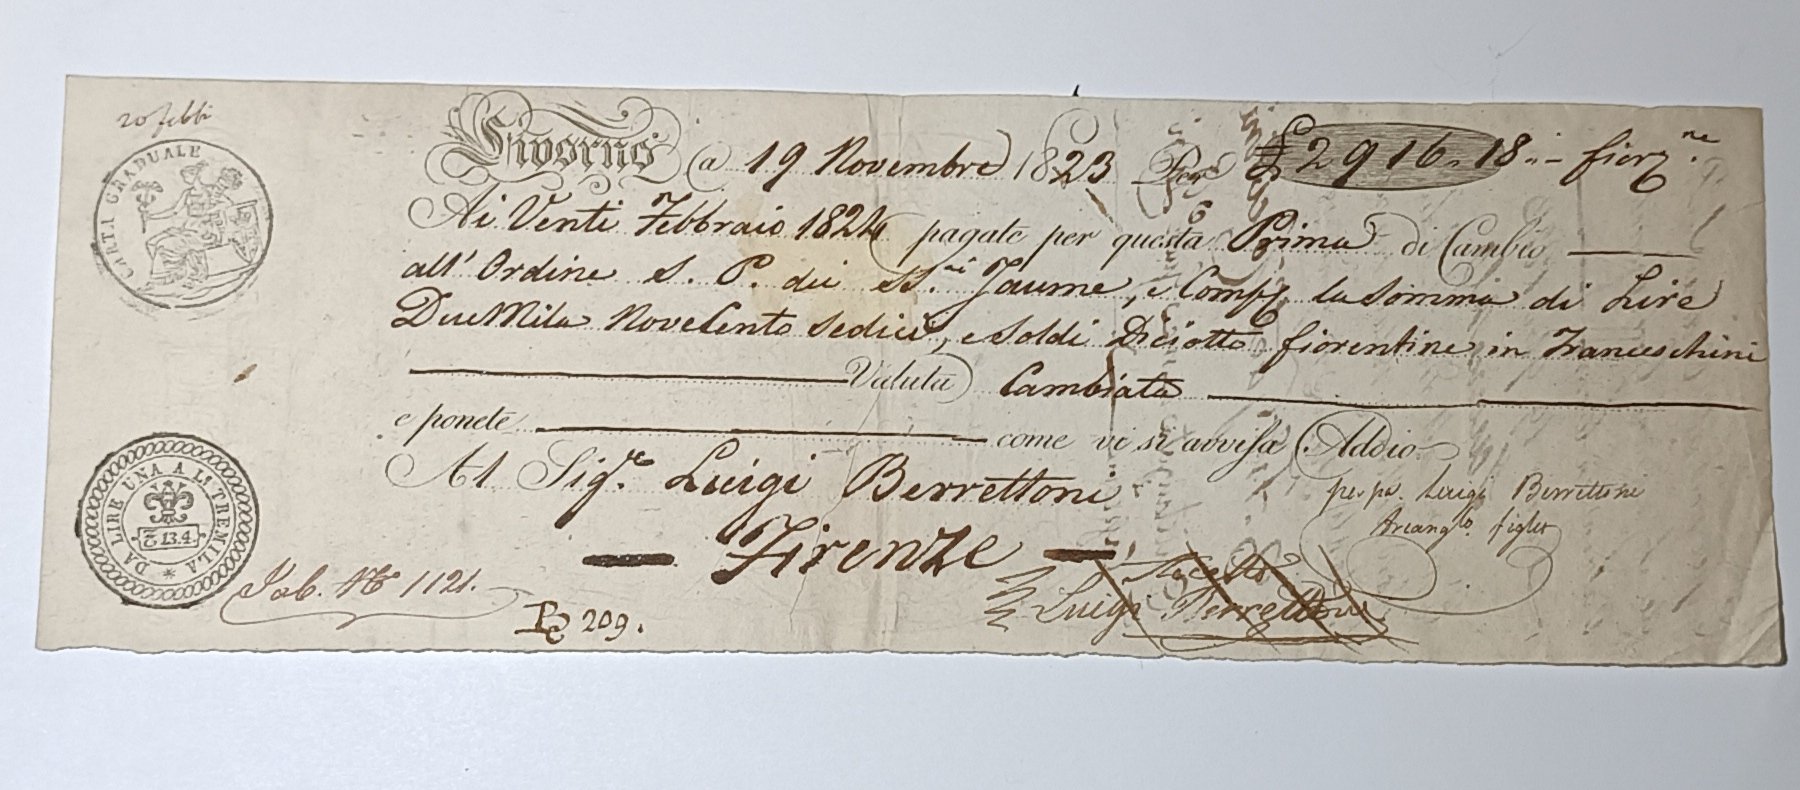 20 febb
CARTA GRADUALE
Livorno a 19 Novembre 1823 Per £ 2916.18.- fior.ne
Ai Venti Febbraio 1824 pagate per questa Prima di Cambio
all' Ordine S. P. dei SS.ri Jaume, e Comp. la Somma di Lire
Due Mila Nove Cento Sedici, e Soldi Diciotto fiorentine in Franceschini
Valuta Cambiata
e ponete come vi si avvisa Addio
Al Sig.re Luigi Berrettoni
per pa. Luigi Berrettoni
Arcang.lo figlio
Firenze
DA LIRE UNA A LI TREMILA
13.4
No 1121.
209.
Accetto
Luigi Berrettoni